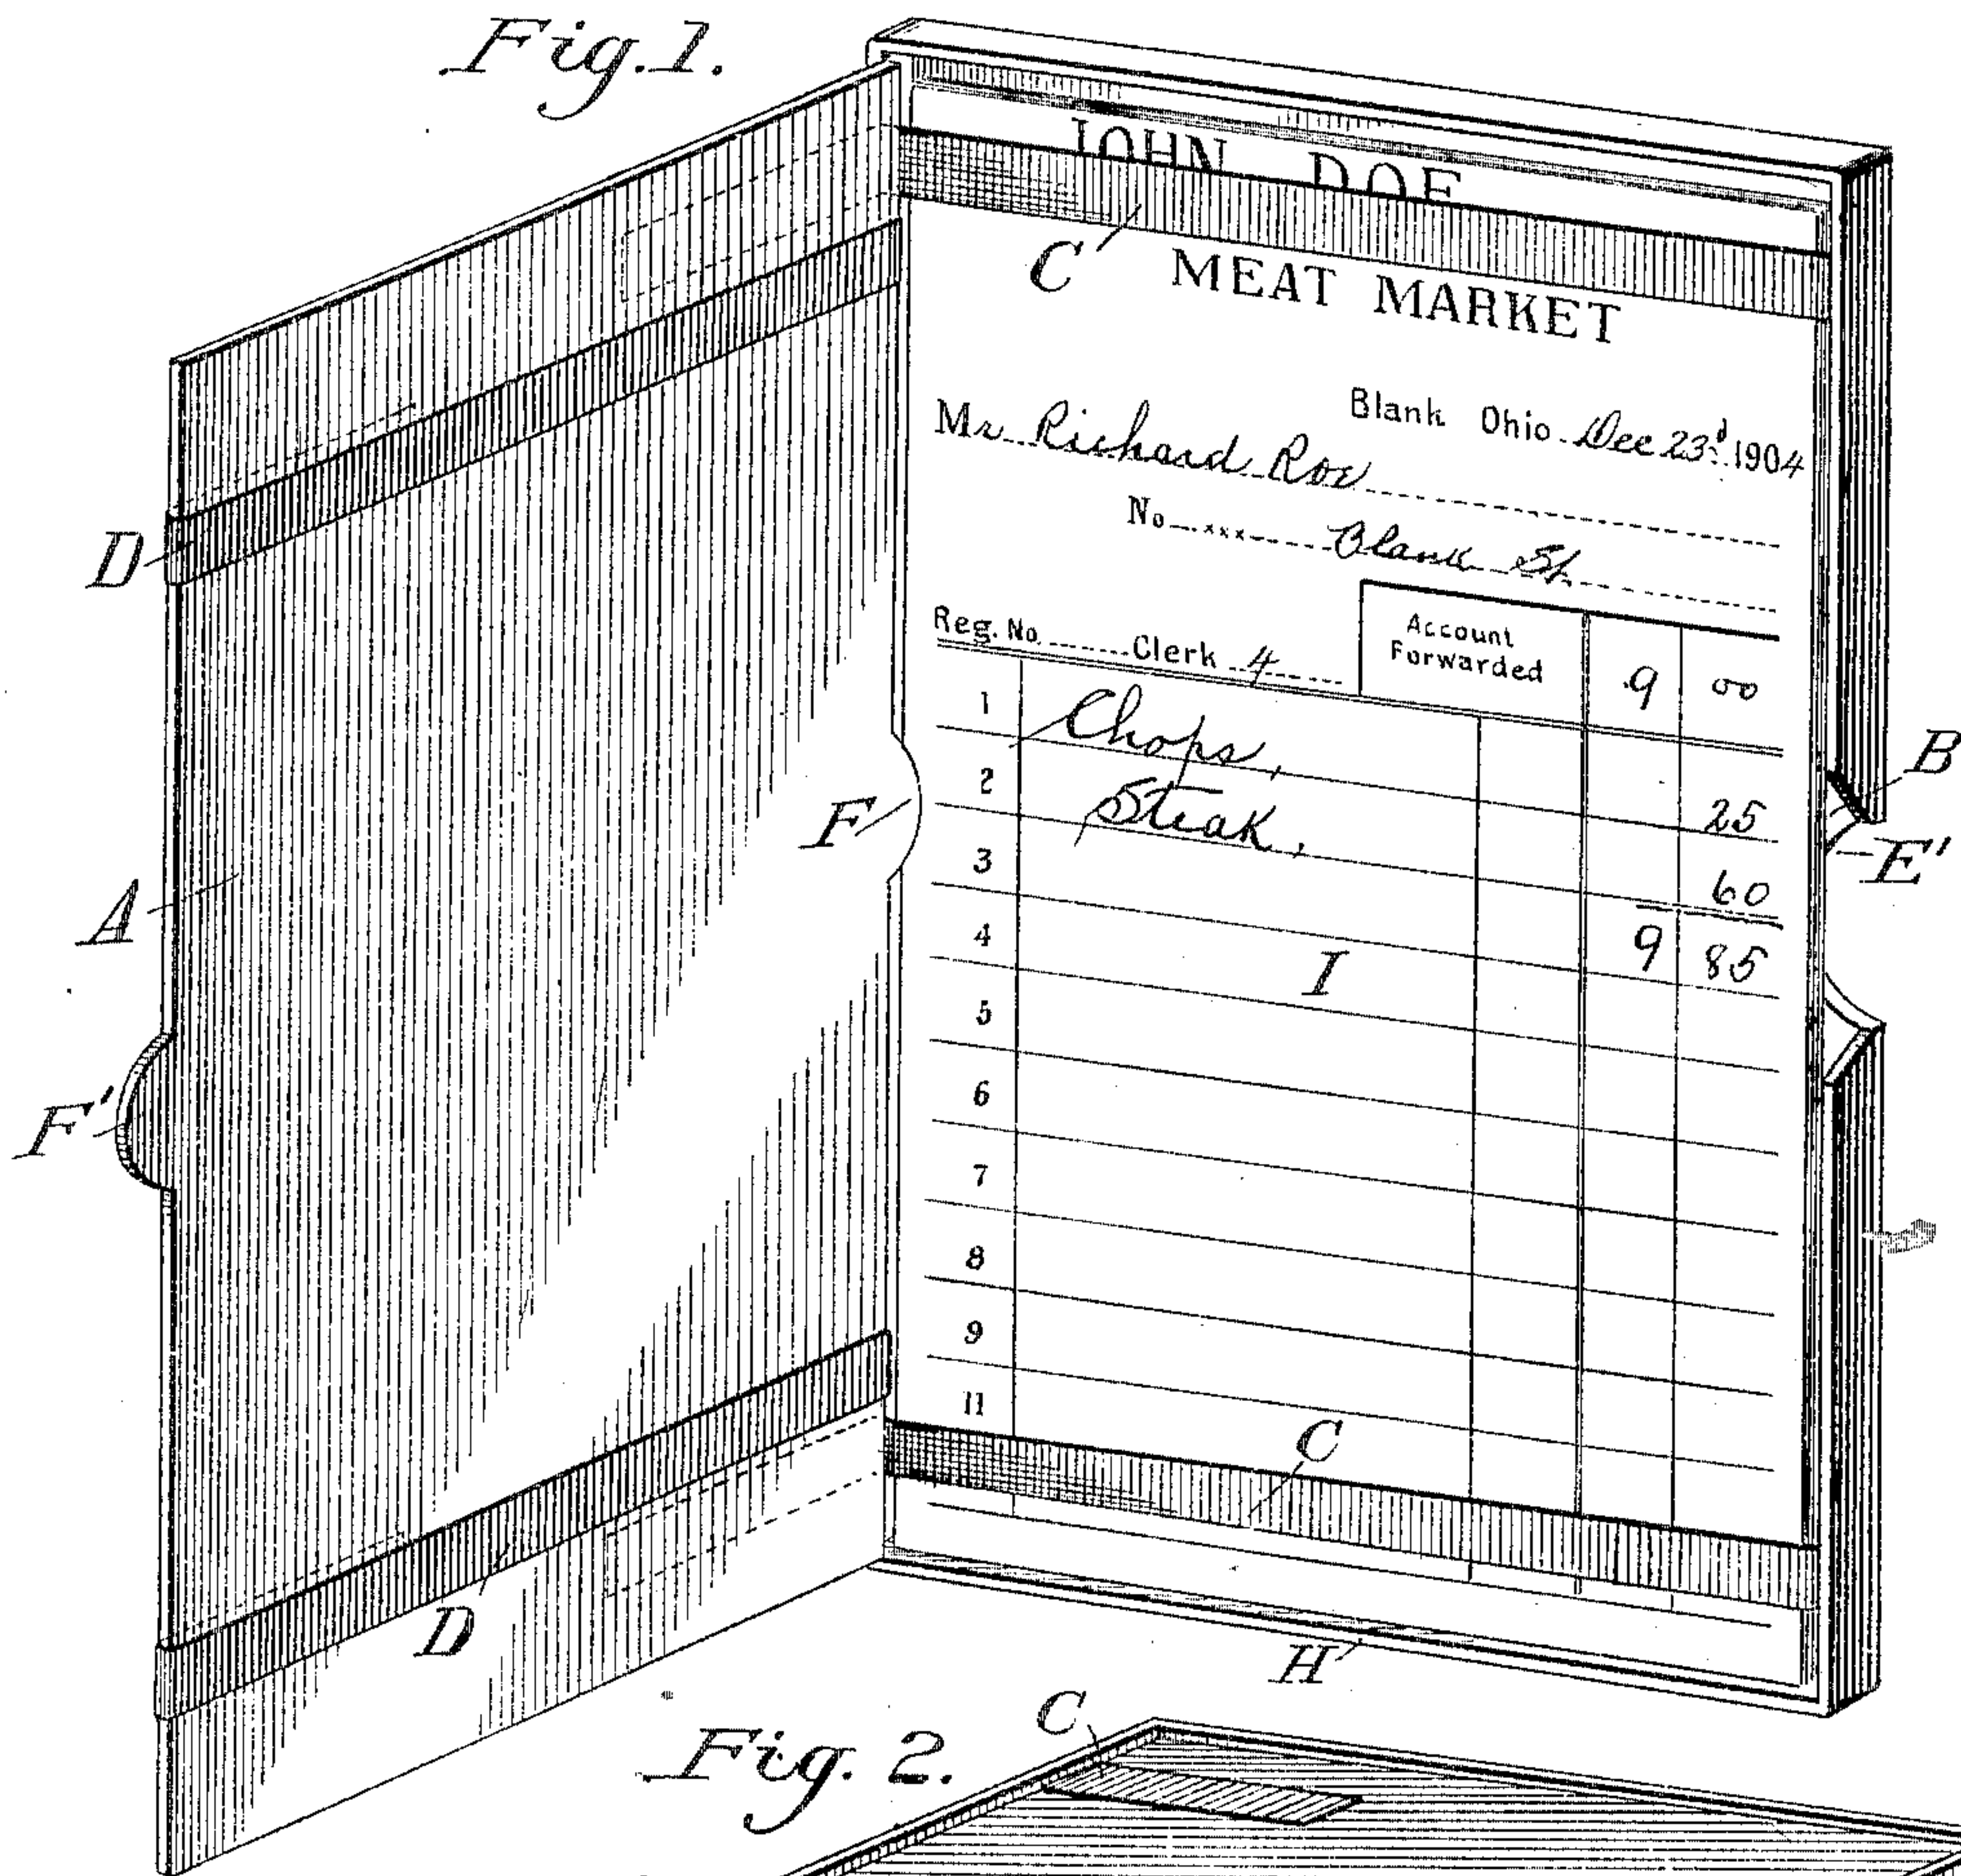 Fig. 1.
JOHN DOE
C
MEAT MARKET
Blank Ohio Dec 23d 1904
Mr Richard Roe
No xxx Blank St
D
Reg. No Clerk 4
Account Forwarded 9 00
1 Chops, 25
2 Steak, 60
3
9 85
4
5
6
7
8
9
11
F
B
E'
A
I
F'
C
D
H
Fig. 2.
C